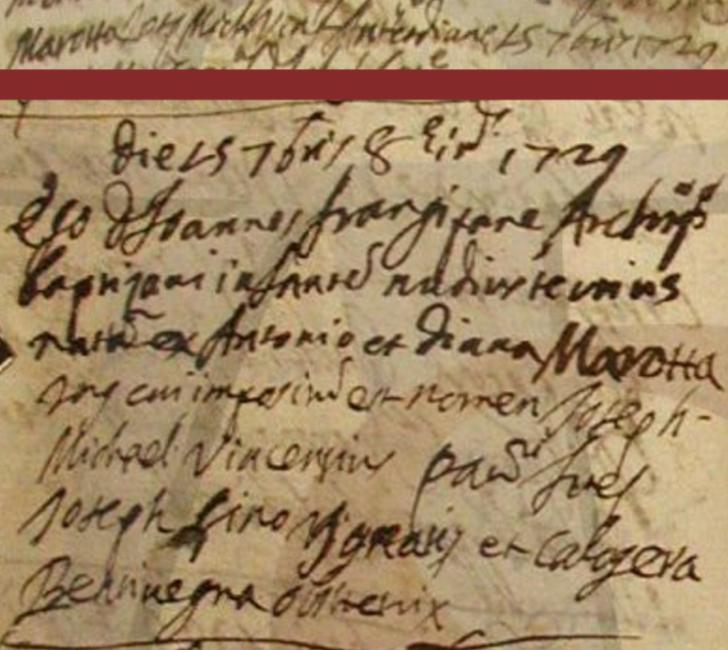 Marotta Joseph Michael Vincent Antonii Diane 15 7bris 1729
die 15 7bris 8 Ind. 1729
Ego D Joannes frangipane Archips
baptizavi infantem nudiustertius
natum ex Antonio et diana Marotta
Jug cui impositum est nomen Joseph-
Michael Vincentius patni fues
Joseph Gino et Calogera
Benivegna obstetrix